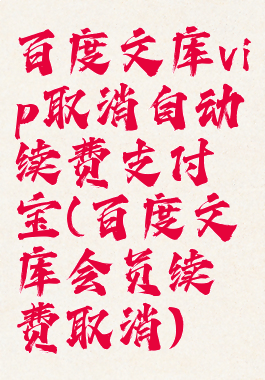 百度文库vi
p取消自动
续费支付
宝(百度文
库会员续
费取消)